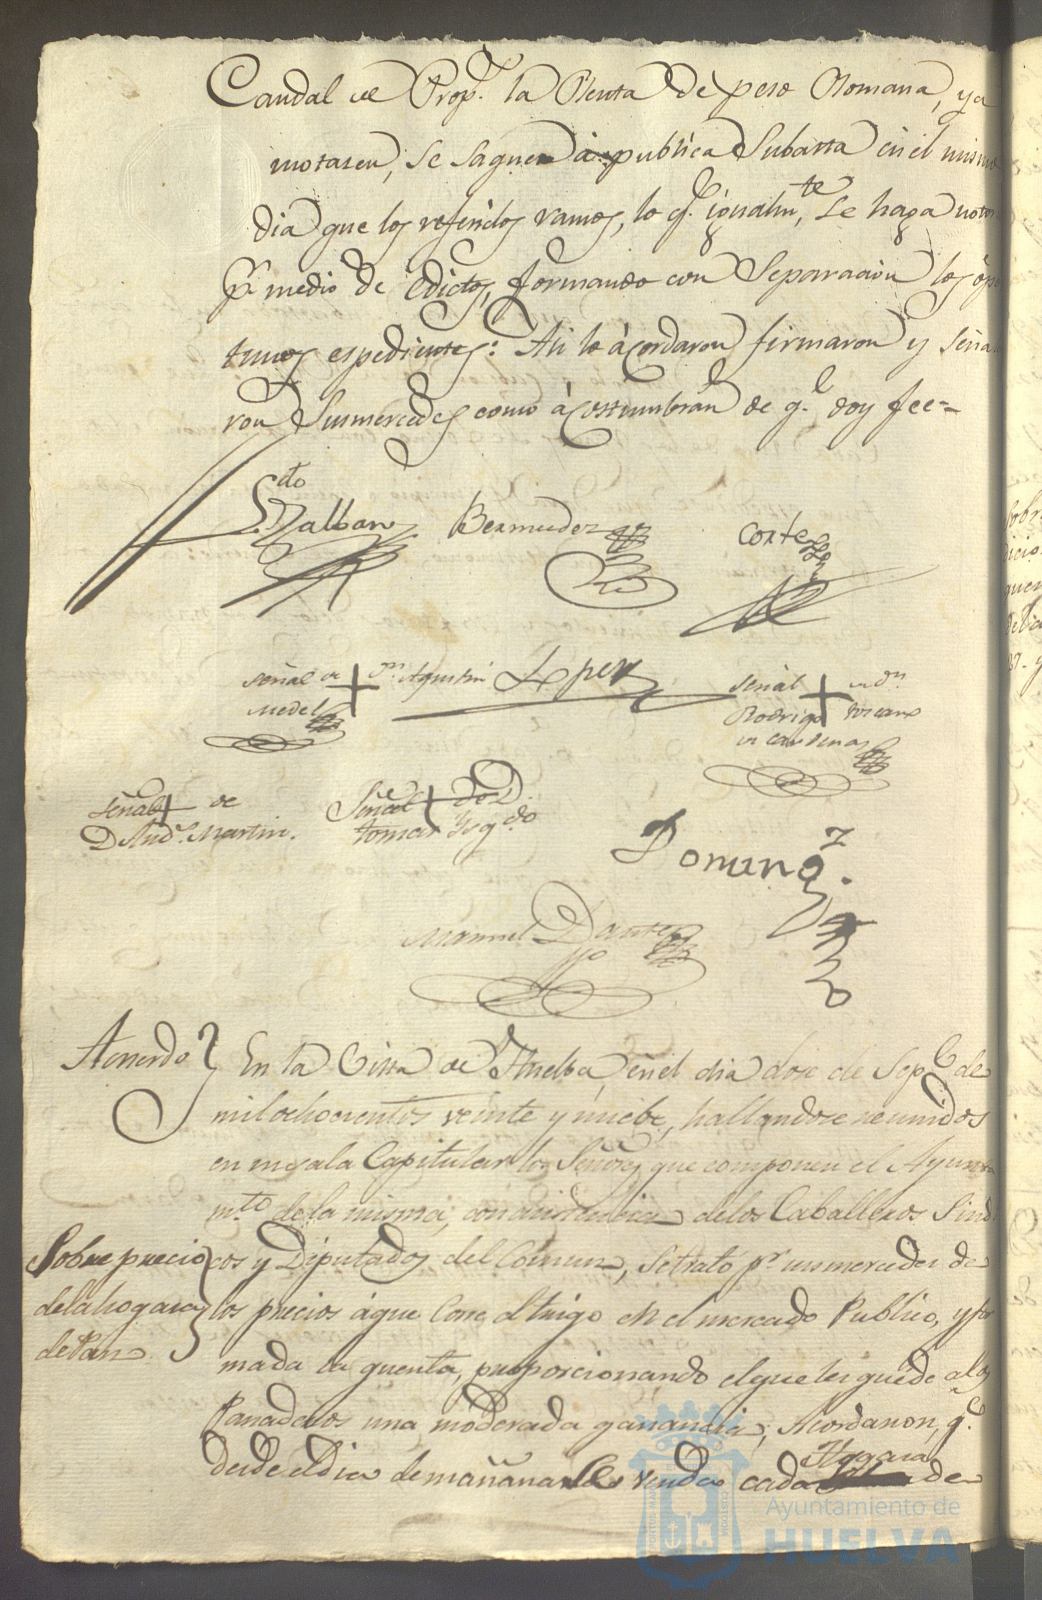 Caudal de Prop.s la Renta de peso Romana, y a
motacen, se saquen à publica Subasta en el mismo
dia que los referidos ramos, lo q.e igualm.te se haga notor
p.r medio de Edictos, formando con Separacion los opor
tunos espedientes: Asi lo àcordaron firmaron y seña
ron Sus mercedes como àcostumbran de q.e doy fee=
L.do Malban
Bermudez
Cortes
Señal de + D.n Agustin
Medel
Lopez
Señal + de D.n
Rodrigo Vizcano
de Cardenas
Señal + de
D. And.s Martin.
Señal + de D.
Tomas Yzq.do
Doming.z
Manuel Dante
Acuerdo
En la Villa de Huelba, en el dia doze de Sep.e de
mil ochocientos veinte y nuebe, hallandose reunidos
en su sala Capitular los Señores que componen el Ayunta
m.to de la misma, con asistencia de los Caballeros Sindi
Sobre precio
de la hogaza
de Pan
cos y Diputados del Comun, se trató p.r sus mercedes de
los precios à que corre el trigo en el mercado Publico, y for
mada la quenta, proporcionando el que les quede a los
Panaderos una moderada ganancia; Acordaron, q.e
desde el dia de mañana se venda cada Hogaza de
Ayuntamiento de
HUELVA